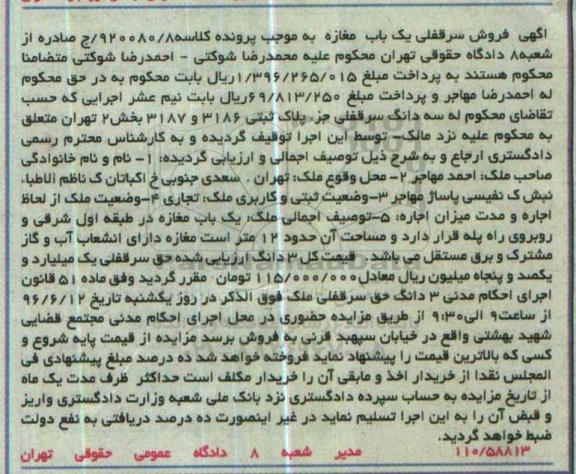 آگهی فروش سرقفلی یک باب مغازه به موجب پرونده کلاسه۹۲۰۰۸۰/۸/ج صادره از
شعبه۸ دادگاه حقوقی تهران محکوم علیه محمدرضا شوکتی - احمدرضا شوکتی متضامنا
محکوم هستند به پرداخت مبلغ ۱/۳۹۶/۲۶۵/۰۱۵ریال بابت محکوم به در حق محکوم
له احمدرضا مهاجر و پرداخت مبلغ ۶۹/۸۱۳/۲۵۰ریال بابت نیم عشر اجرایی که حسب
تقاضای محکوم له سه دانگ سرقفلی جز پلاک ثبتی ۳۱۸۶ و ۳۱۸۷ بخش۲ تهران متعلق
به محکوم علیه نزد مالک- توسط این اجرا توقیف گردیده و به کارشناس محترم رسمی
دادگستری ارجاع و به شرح ذیل توصیف اجمالی و ارزیابی گردیده: ۱- نام و نام خانوادگی
صاحب ملک: احمد مهاجر ۲- محل وقوع ملک: تهران . سعدی جنوبی خ اکباتان ک ناظم الاطباء
نبش ک نفیسی پاساژ مهاجر ۳-وضعیت ثبتی و کاربری ملک: تجاری ۴-وضعیت ملک از لحاظ
اجاره و مدت میزان اجاره: ۵-توصیف اجمالی ملک: یک باب مغازه در طبقه اول شرقی و
روبروی راه پله قرار دارد و مساحت آن حدود ۱۲ متر است مغازه دارای انشعاب آب و گاز
مشترک و برق مستقل می باشد . قیمت کل ۳ دانگ ارزیابی شده حق سرقفلی یک میلیارد و
یکصد و پنجاه میلیون ریال معادل۱۱۵/۰۰۰/۰۰۰ تومان مقرر گردید وفق ماده ۵۱ قانون
اجرای احکام مدنی ۳ دانگ حق سرقفلی ملک فوق الذکر در روز یکشنبه تاریخ ۹۶/۶/۱۲
از ساعت۹ الی۹:۳۰ از طریق مزایده حضوری در محل اجرای احکام مدنی مجتمع قضایی
شهید بهشتی واقع در خیابان سپهبد قرنی به فروش برسد مزایده از قیمت پایه شروع و
کسی که بالاترین قیمت را پیشنهاد نماید فروخته خواهد شد ده درصد مبلغ پیشنهادی فی
المجلس نقدا از خریدار اخذ و مابقی آن را خریدار مکلف است حداکثر ظرف مدت یک ماه
از تاریخ مزایده به حساب سپرده دادگستری نزد بانک ملی شعبه وزارت دادگستری واریز
و قبض آن را به این اجرا تسلیم نماید در غیر اینصورت ده درصد دریافتی به نفع دولت
ضبط خواهد گردید.
۱۱۰/۵۸۸۱۳ مدیر شعبه ۸ دادگاه عمومی حقوقی تهران